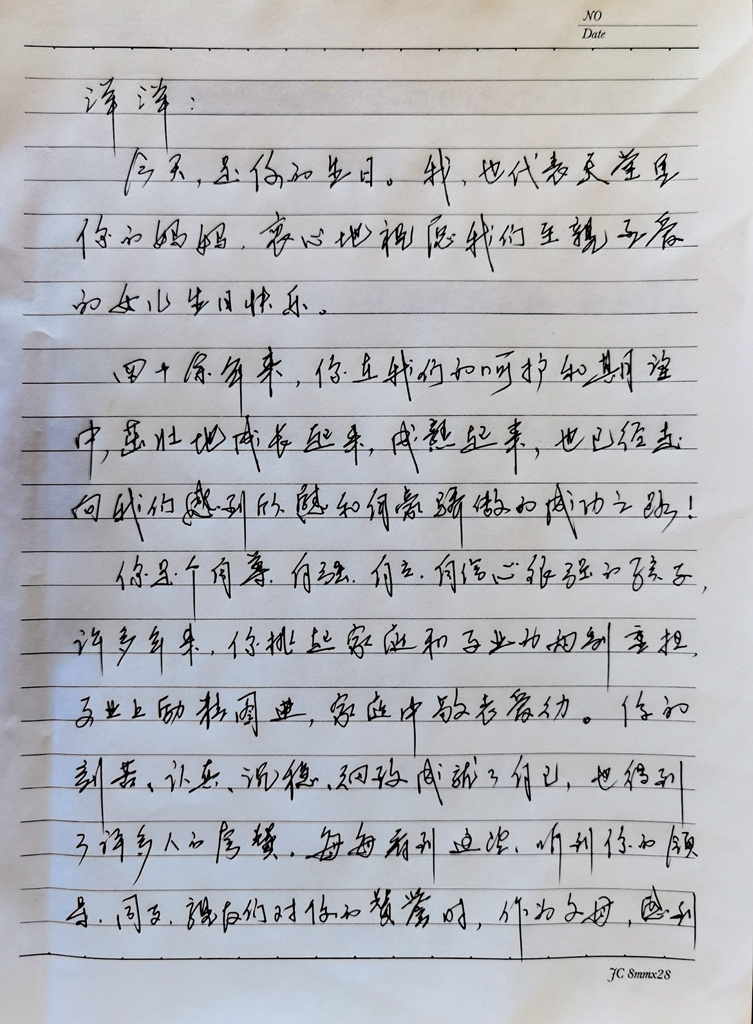 NO
Date
洋洋：
今天，是你的生日。我，也代表天堂里
你的妈妈，衷心地祝愿我们至亲至爱
的女儿生日快乐。
四十余年来，你在我们的呵护和期望
中，茁壮地成长起来，成熟起来，也已经走
向我们感到欣慰和自豪骄傲的成功之路！
你是个自尊、自强、自立、自信心很强的孩子，
许多年来，你挑起家庭和事业的两副重担，
事业上励精图典，家庭中敬老爱幼。你的
刻苦、认真、沉稳、细致成就了自己，也得到
了许多人的赞。每每看到这些，听到你的领
导、同事、亲友们对你的赞誉时，作为父母，感到
JC 8mmx28